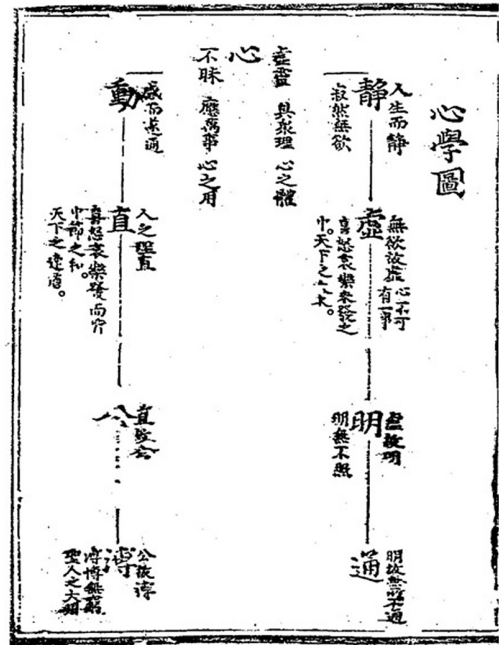 心學圖
人生而靜
靜
寂然無欲
無欲故虛 心不可有一事
虛
喜怒哀樂未發之
中。天下之大本。
虛故明
明
明無不照
明故無所不通
通
虛靈 具衆理 心之體
心
不昧 應萬事 心之用
動
感而遂通
人之生直
直
喜怒哀樂發而
中節之和。
天下之達道。
直故公
公
公故溥
溥
溥博無
聖人之大